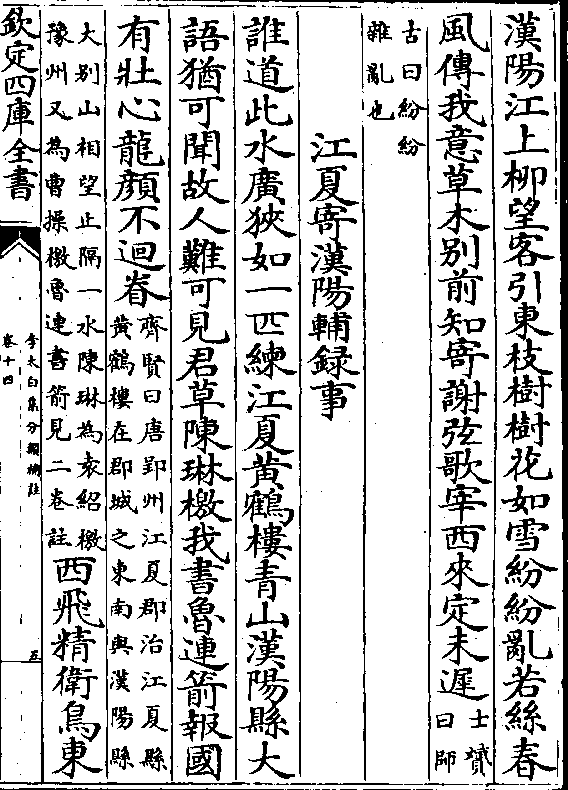 漢陽江上柳望客引東枝樹樹花如雪紛紛亂若絲春
風傳我意草木別前知寄謝弦歌宰西來定未遲士贇曰師
古曰紛紛雜亂也
江夏寄漢陽輔録事
誰道此水廣狹如一匹練江夏黃鶴樓青山漢陽縣大
語猶可聞故人難可見君草陳琳檄我書魯連箭報國
有壯心龍顔不迴眷齊賢曰唐鄂州江夏郡治江夏縣黃鶴樓在郡城之東南與漢陽縣
大別山相望止隔一水陳琳為袁紹檄豫州又為曹操檄魯連書箭見二卷註西飛精衛鳥東
欽定四庫全書
李太白集分類補註
卷十四
五